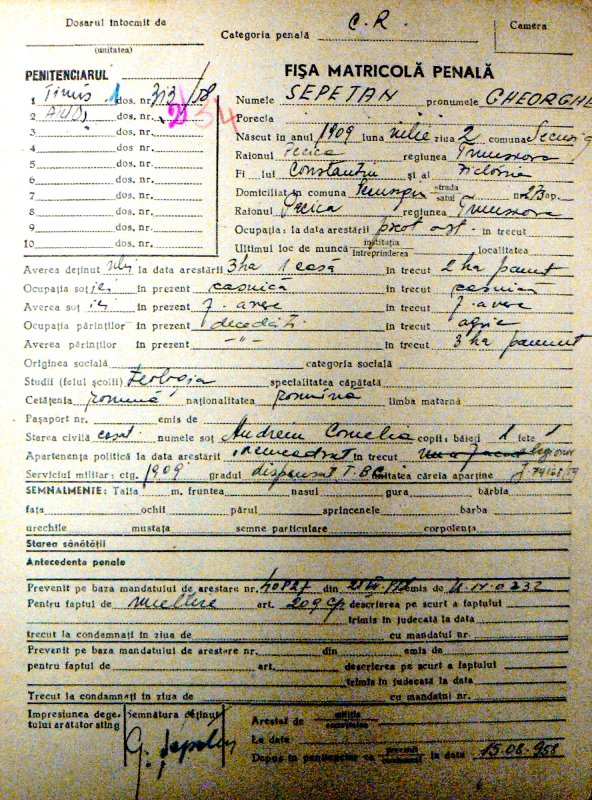 Dosarul întocmit de
(unitatea)
Categoria penală C.R.
Camera
PENITENCIARUL
FIŞA MATRICOLĂ PENALĂ
1 Timiş 1 dos. nr. 313/58
2 AIUD dos. nr.
3 dos. nr.
4 dos. nr.
5 dos. nr.
6 dos. nr.
7 dos. nr.
8 dos. nr.
9 dos. nr.
10 dos. nr.
Numele SEPEŢAN pronumele GHEORGHE
Porecla
Născut în anul 1909 luna iulie ziua 2 comuna
Raionul Pecica regiunea Timişoara
Fi lui Constantin şi al
Domiciliat în comuna strada satul nr. 273 ap.
Raionul Pecica regiunea Timişoara
Ocupaţia: la data arestării preot ort. în trecut
Ultimul loc de muncă instituţia întreprinderea localitatea
Averea deţinut la data arestării 3 ha 1 casă în trecut 2 ha pamant
Ocupaţia soţ iei în prezent casnică în trecut casnică
Averea soţ iei în prezent f. avere în trecut f. avere
Ocupaţia părinţilor în prezent decedaţi în trecut agric
Averea părinţilor în prezent -"- în trecut 3 ha pamant
Originea socială categoria socială
Studii (felul şcolii) Teologia specialitatea căpătată
Cetăţenia romînă naţionalitatea romînă limba maternă
Paşaport nr. emis de
Starea civilă casat numele soţ Andreiu Cornelia copii: băieţi 1 fete 1
Apartenenţa politică la data arestării neincadrat în trecut legionar
Serviciul militar: ctg. 1909 gradul dispensat T.B.C. unitatea căreia aparţine
SEMNALMENTE: Talia m. fruntea nasul gura bărbia
faţa ochii părul sprincenele barba
urechile mustaţa semne particulare corpolenţa
Starea sănătăţii
Antecedente penale
Prevenit pe baza mandatului de arestare nr. din emis de
Pentru faptul de uneltire art. 209 cp descrierea pe scurt a faptului
trimis în judecată la data
trecut la condamnaţi în ziua de cu mandatul nr.
Prevenit pe baza mandatului de arestare nr. din emis de
pentru faptul de art. descrierea pe scurt a faptului
trimis în judecată la data
Trecut la condamnaţi în ziua de cu mandatul nr.
Impresiunea degetului arătător sting
Semnătura deţinut
Arestat de
La data
Depus în penitenciar ca prevenit la data 15.08.958